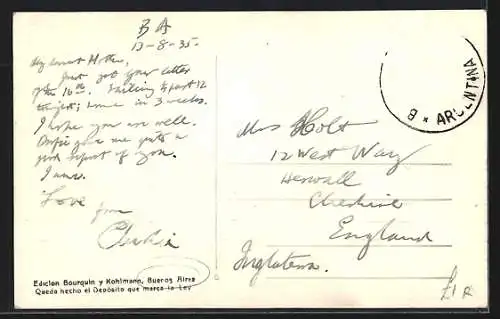 B A
13-8-35.
My dearest Mother,
Just got your letter
of the 16th. Sailing past 12
tonight; home in 3 weeks.
I hope you are well.
give me quite a
good report of you.
Love
from
Mrs Holt
12 West Way
Heswall
Cheshire
England
Inglaterra.
B * ARGENTINA
Edicion Bourquin y Kohlmann, Buenos Aires
Queda hecho el Depósito que marca la Ley
£1